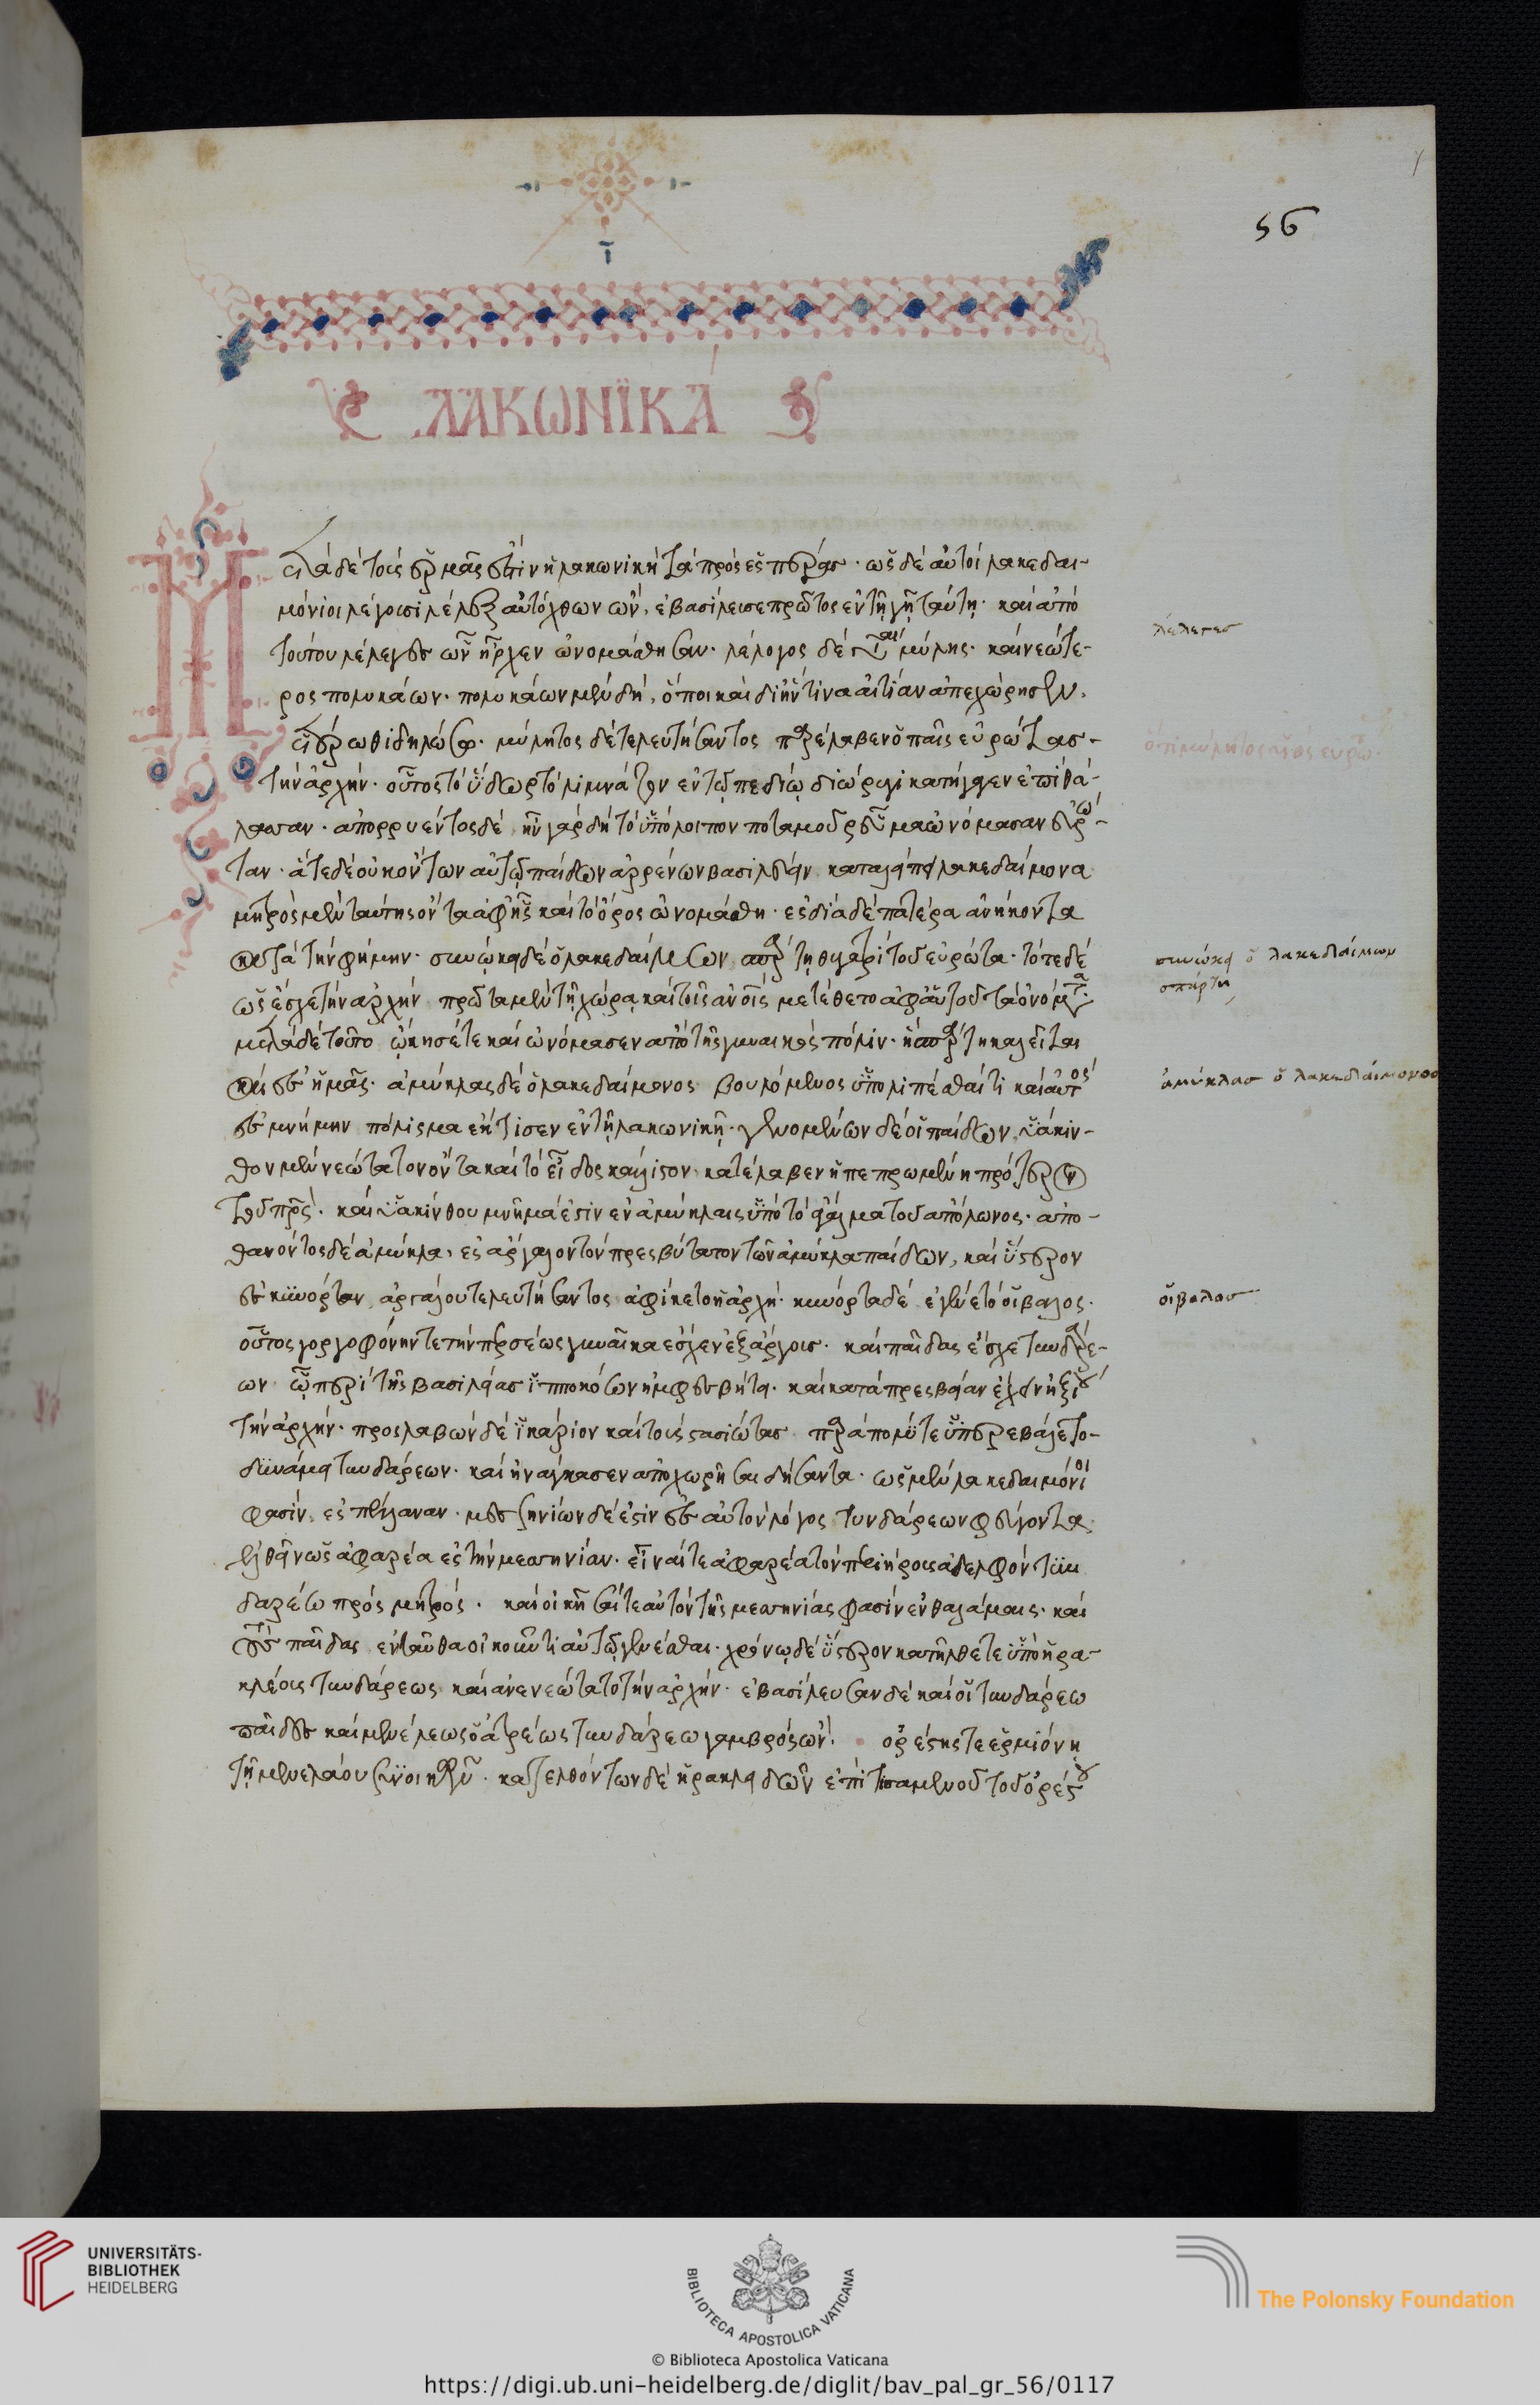 56
ῑ
ΛΑΚΩΝΪΚΆ
Μετὰ δὲ τοὺς ἑρμᾶς ἐστὶν ἡ λακωνικὴ τὰ πρὸς ἑσπέρασ. ὡς δὲ αὐτοὶ λακεδαι-
μόνιοι λέγουσι λέλεξ αὐτόχθων ὢν, ἐβασίλευσε πρῶτος ἐν τῇ γῇ ταύτῃ. καὶ ἀπὸ
τούτου λέλεγες ὧν ἦρχεν ὠνομάσθησαν. λέλογος δὲ γίνεται μύλης. καὶ νεώτε-
ρος πολυκάων. πολυκάων μὲν δὴ, ὅποι καὶ δι' ἥντινα αἰτίαν ἀπεχώρησεν,
ἑτέρωθι δηλώσω. μύλητος δὲ τελευτήσαντος παρέλαβεν ὁ παῖς εὐρώτασ-
τὴν ἀρχήν. οὗτος τὸ ὕδωρ τὸ λιμνάζον ἐν τῷ πεδίῳ διώρυγι κατήγαγεν ἐπὶ θά-
λασσαν. ἀπορρυέντος δὲ ἦν γὰρ δὴ τὸ ὑπόλοιπον ποταμοῦ ῥεῦμα ὠνόμασαν εὐρώ-
ταν. ἅτε δὲ οὐκ ὄντων αὐτῷ παίδων ἀρρένων βασιλεύειν καταλείπει λακεδαίμονα
μητρὸς μὲν ταύτης ὄντα ἀφ' ἧς καὶ τὸ ὄρος ὠνομάσθη. ἐς δία δὲ πατέρα ἀνήκοντα
κατὰ τὴν φήμην. συνῴκει δὲ ὁ λακεδαίμων σπάρτῃ θυγατρὶ τοῦ εὐρώτα. τότε δὲ
ὡς ἔσχε τὴν ἀρχὴν πρῶτα μὲν τῇ χώρᾳ καὶ τοῖς ἀνοις μετέθετο ἀφ' αὑτοῦ τὰ ὀνόματα.
μετὰ δὲ τοῦτο ᾤκησέ τε καὶ ὠνόμασεν ἀπὸ τῆς γυναικὸς πόλιν. ἣ σπάρτη καλεῖται
καὶ ἐς ἡμᾶς. ἀμύκλας δὲ ὁ λακεδαίμονος βουλόμενος ὑπολιπέσθαι τι καὶ αὐτὸς
ἐς μνήμην πόλισμα ἔκτισεν ἐν τῇ λακωνικῇ. γενομένων δέ οἱ παίδων, ὑάκιν-
θον μὲν νεώτατον ὄντα καὶ τὸ εἶδος κάλλιστον κατέλαβεν ἡ πεπρωμένη πρότερον
τοῦ πρς. καὶ ὑακίνθου μνῆμά ἐστιν ἐν ἀμύκλαις ὑπὸ τὸ ἄγαλμα τοῦ ἀπόλωνος. ἀπο-
θανόντος δὲ ἀμύκλα, ἐς ἄργαλον τὸν πρεσβύτατον τῶν ἀμύκλα παίδων, καὶ ὕστερον
ἐς κυνόρταν ἀργάλου τελευτήσαντος ἀφίκετο ἡ ἀρχή. κυνόρτα δὲ ἐγένετο οἴβαλος.
οὗτος γοργοφόνην τε τὴν περσέως γυναῖκα ἔσχεν ἐξ ἄργους. καὶ παῖδας ἔσχε τυνδάρε-
ων ᾧ περὶ τῆς βασιλείας ἱπποκόων ἠμφεσβήτει. καὶ κατὰ πρεσβείαν ἔχειν ἠξίου
τὴν ἀρχήν. προσλαβὼν δὲ ἰκάριον καὶ τοὺς στασιώτας παρὰ πολύ τε ὑπερεβάλετο-
δυνάμει τυνδάρεων. καὶ ἠνάγκασεν ἀποχωρῆσαι δήσαντα. ὡς μὲν λακεδαιμόνιοί
φασίν, ἐς πελλάναν. μεσσηνίων δέ ἐστιν ἐς αὐτὸν λόγος τυνδάρεων φεύγοντα
ἐλθεῖν ὡς ἀφαρέα ἐς τὴν μεσσηνίαν. εἶναί τε ἀφαρέα τὸν περιήρους ἀδελφὸν τυν
δαρέω πρὸς μητρός. καὶ οἰκῆσαί τε αὐτὸν τῆς μεσσηνίας φασὶν ἐν θαλάμαις. καὶ
τοὺς παῖδας ἐνταῦθα οἰκοῦντι αὐτῷ γενέσθαι. χρόνῳ δὲ ὕστερον κατῆλθέ τε ὑπὸ ἡρα-
κλέους τυνδάρεως καὶ ἀνενεώτατο τὴν ἀρχήν. ἐβασίλευσαν δὲ καὶ οἱ τυνδάρεω
παῖδες καὶ μενέλεως ὁ ἀτρέως τυνδάρεω γαμβρὸς ὤν. ὀρέστης τε ἑρμιόνη
τῇ μενελάου συνοικῶν. κατελθόντων δὲ ἡρακλειδῶν ἐπὶ τισαμενοῦ τοῦ ὀρέστου
λέλεγεσ
συνώκει ὁ λακεδαίμων
σπάρτη
ἀμύκλασ ὁ λακεδαίμονοσ
οἴβαλοσ
UNIVERSITÄTS-
BIBLIOTHEK
HEIDELBERG
BIBLIOTECA APOSTOLICA VATICANA
The Polonsky Foundation
© Biblioteca Apostolica Vaticana
https://digi.ub.uni-heidelberg.de/diglit/bav_pal_gr_56/0117